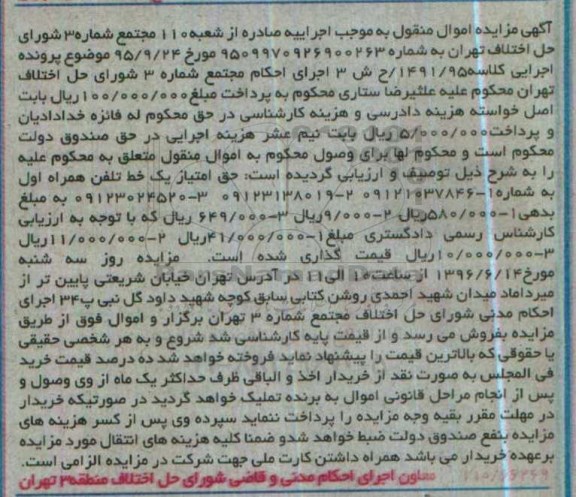 آگهی مزایده اموال منقول به موجب اجراییه صادره از شعبه ۱۱۰ مجتمع شماره ۳ شورای
حل اختلاف تهران به شماره ۹۵۰۹۹۷۰۹۲۶۹۰۰۲۶۳ مورخ ۹۵/۹/۲۴ موضوع پرونده
اجرایی کلاسه ۱۴۹۱/۹۵/ج ش ۳ اجرای احکام مجتمع شماره ۳ شورای حل اختلاف
تهران محکوم علیه علیرضا ستاری محکوم به پرداخت مبلغ ۱۰۰/۰۰۰/۰۰۰ ریال بابت
اصل خواسته هزینه دادرسی و هزینه کارشناسی در حق محکوم له فائزه خدادادیان
و پرداخت ۵/۰۰۰/۰۰۰ ریال بابت نیم عشر هزینه اجرایی در حق صندوق دولت
محکوم است و محکوم لها برای وصول محکوم به اموال منقول متعلق به محکوم علیه
را به شرح ذیل توصیف و ارزیابی گردیده است: حق امتیاز یک خط تلفن همراه اول
به شماره ۱-۰۹۱۲۱۰۳۷۸۴۶ ۲-۰۹۱۲۳۱۳۸۰۱۹ ۳-۰۹۱۲۳۰۲۴۵۲۰ به مبلغ
بدهی ۱-۵۸۰/۰۰۰ریال ۲-۹/۰۰۰ریال ۳-۶۴۹/۰۰۰ ریال که با توجه به ارزیابی
کارشناس رسمی دادگستری مبلغ ۱-۴۱/۰۰۰/۰۰۰ریال ۲-۱۱/۰۰۰/۰۰۰ریال
۳-۱۰/۰۰۰/۰۰۰ریال قیمت گذاری شده است. مزایده روز سه شنبه
مورخ ۱۳۹۶/۶/۱۴ از ساعت ۱۰ الی ۱۱ در آدرس تهران خیابان شریعتی پایین تر از
میرداماد میدان شهید احمدی روشن کتابی سابق کوچه شهید داود گل نبی پ ۳۴ اجرای
احکام مدنی شورای حل اختلاف مجتمع شماره ۳ تهران برگزار و اموال فوق از طریق
مزایده بفروش می رسد و از قیمت پایه کارشناسی شد شروع و به هر شخصی حقیقی
یا حقوقی که بالاترین قیمت را پیشنهاد نماید فروخته خواهد شد ده درصد قیمت خرید
فی المجلس به صورت نقد از خریدار اخذ و الباقی ظرف حداکثر یک ماه از وی وصول و
پس از انجام مراحل قانونی اموال به برنده تملیک خواهد گردید در صورتیکه خریدار
در مهلت مقرر بقیه وجه مزایده را پرداخت ننماید سپرده وی پس از کسر هزینه های
مزایده بنفع صندوق دولت ضبط خواهد شد و ضمنا کلیه هزینه های انتقال مورد مزایده
برعهده خریدار می باشد همراه داشتن کارت ملی جهت شرکت در مزایده الزامی است.
معاون اجرای احکام مدنی و قاضی شورای حل اختلاف منطقه ۳ تهران